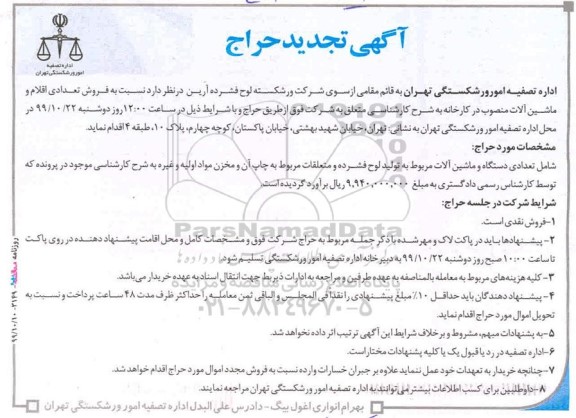 اداره تصفیه
امور ورشکستگی تهران
آگهی تجدید حراج
اداره تصفیه امور ورشکستگی تهران به قائم مقامی از سوی شرکت ورشکسته لوح فشرده آرین در نظر دارد نسبت به فروش تعدادی اقلام و
ماشین آلات منصوب در کارخانه به شرح کارشناسی متعلق به شرکت فوق از طریق حراج و با شرایط ذیل در ساعت ۱۲:۰۰ روز دوشنبه ۹۹/۱۰/۲۲ در
محل اداره تصفیه امور ورشکستگی تهران به نشانی: تهران، خیابان شهید بهشتی، خیابان پاکستان، کوچه چهارم، پلاک ۱۰، طبقه ۴ اقدام نماید.
مشخصات مورد حراج:
شامل تعدادی دستگاه و ماشین آلات مربوط به تولید لوح فشرده و متعلقات مربوط به چاپ آن و مخزن مواد اولیه و غیره به شرح کارشناسی موجود در پرونده که
توسط کارشناس رسمی دادگستری به مبلغ ۹,۹۴۰,۰۰۰,۰۰۰ ریال برآورد گردیده است.
شرایط شرکت در جلسه حراج:
۱-فروش نقدی است.
۲- پیشنهادها باید در پاکت لاک و مهر شده با ذکر جمله مربوط به حراج شرکت فوق و مشخصات کامل و محل اقامت پیشنهاد دهنده در روی پاکت
تا ساعت ۱۰:۰۰ صبح روز دوشنبه ۹۹/۱۰/۲۲ به دبیرخانه اداره تصفیه امور ورشکستگی تسلیم شود.
۳- کلیه هزینه‌های مربوط به معامله بالمناصفه به عهده طرفین و مراجعه به ادارات ذیربط جهت انتقال اسناد به عهده خریدار می‌باشد.
۴- پیشنهاد دهندگان باید حداقل ۱۰٪ مبلغ پیشنهادی را نقداً فی المجلس و الباقی ثمن معامله را حداکثر ظرف مدت ۴۸ ساعت پرداخت و نسبت به
تحویل اموال مورد حراج اقدام نماید.
۵-به پشنهادات مبهم، مشروط و بر خلاف شرایط این آگهی ترتیب اثر داده نخواهد شد.
۶-اداره تصفیه در رد یا قبول یک یا کلیه پشنهادات مختار است.
۷-چنانچه خریدار به تعهدات خود عمل ننماید علاوه بر جبران خسارات وارده نسبت به فروش مجدد اموال مورد حراج اقدام خواهد شد.
۸- داوطلبین برای کسب اطلاعات بیشتر می‌توانند به اداره تصفیه امور ورشکستگی تهران مراجعه نمایند.
بهرام انواری اغول بیگ - دادرس علی البدل اداره تصفیه امور ورشکستگی تهران
ParsNamadData
۰۲۱-۸۸۳۴۹۶۷۰-۵